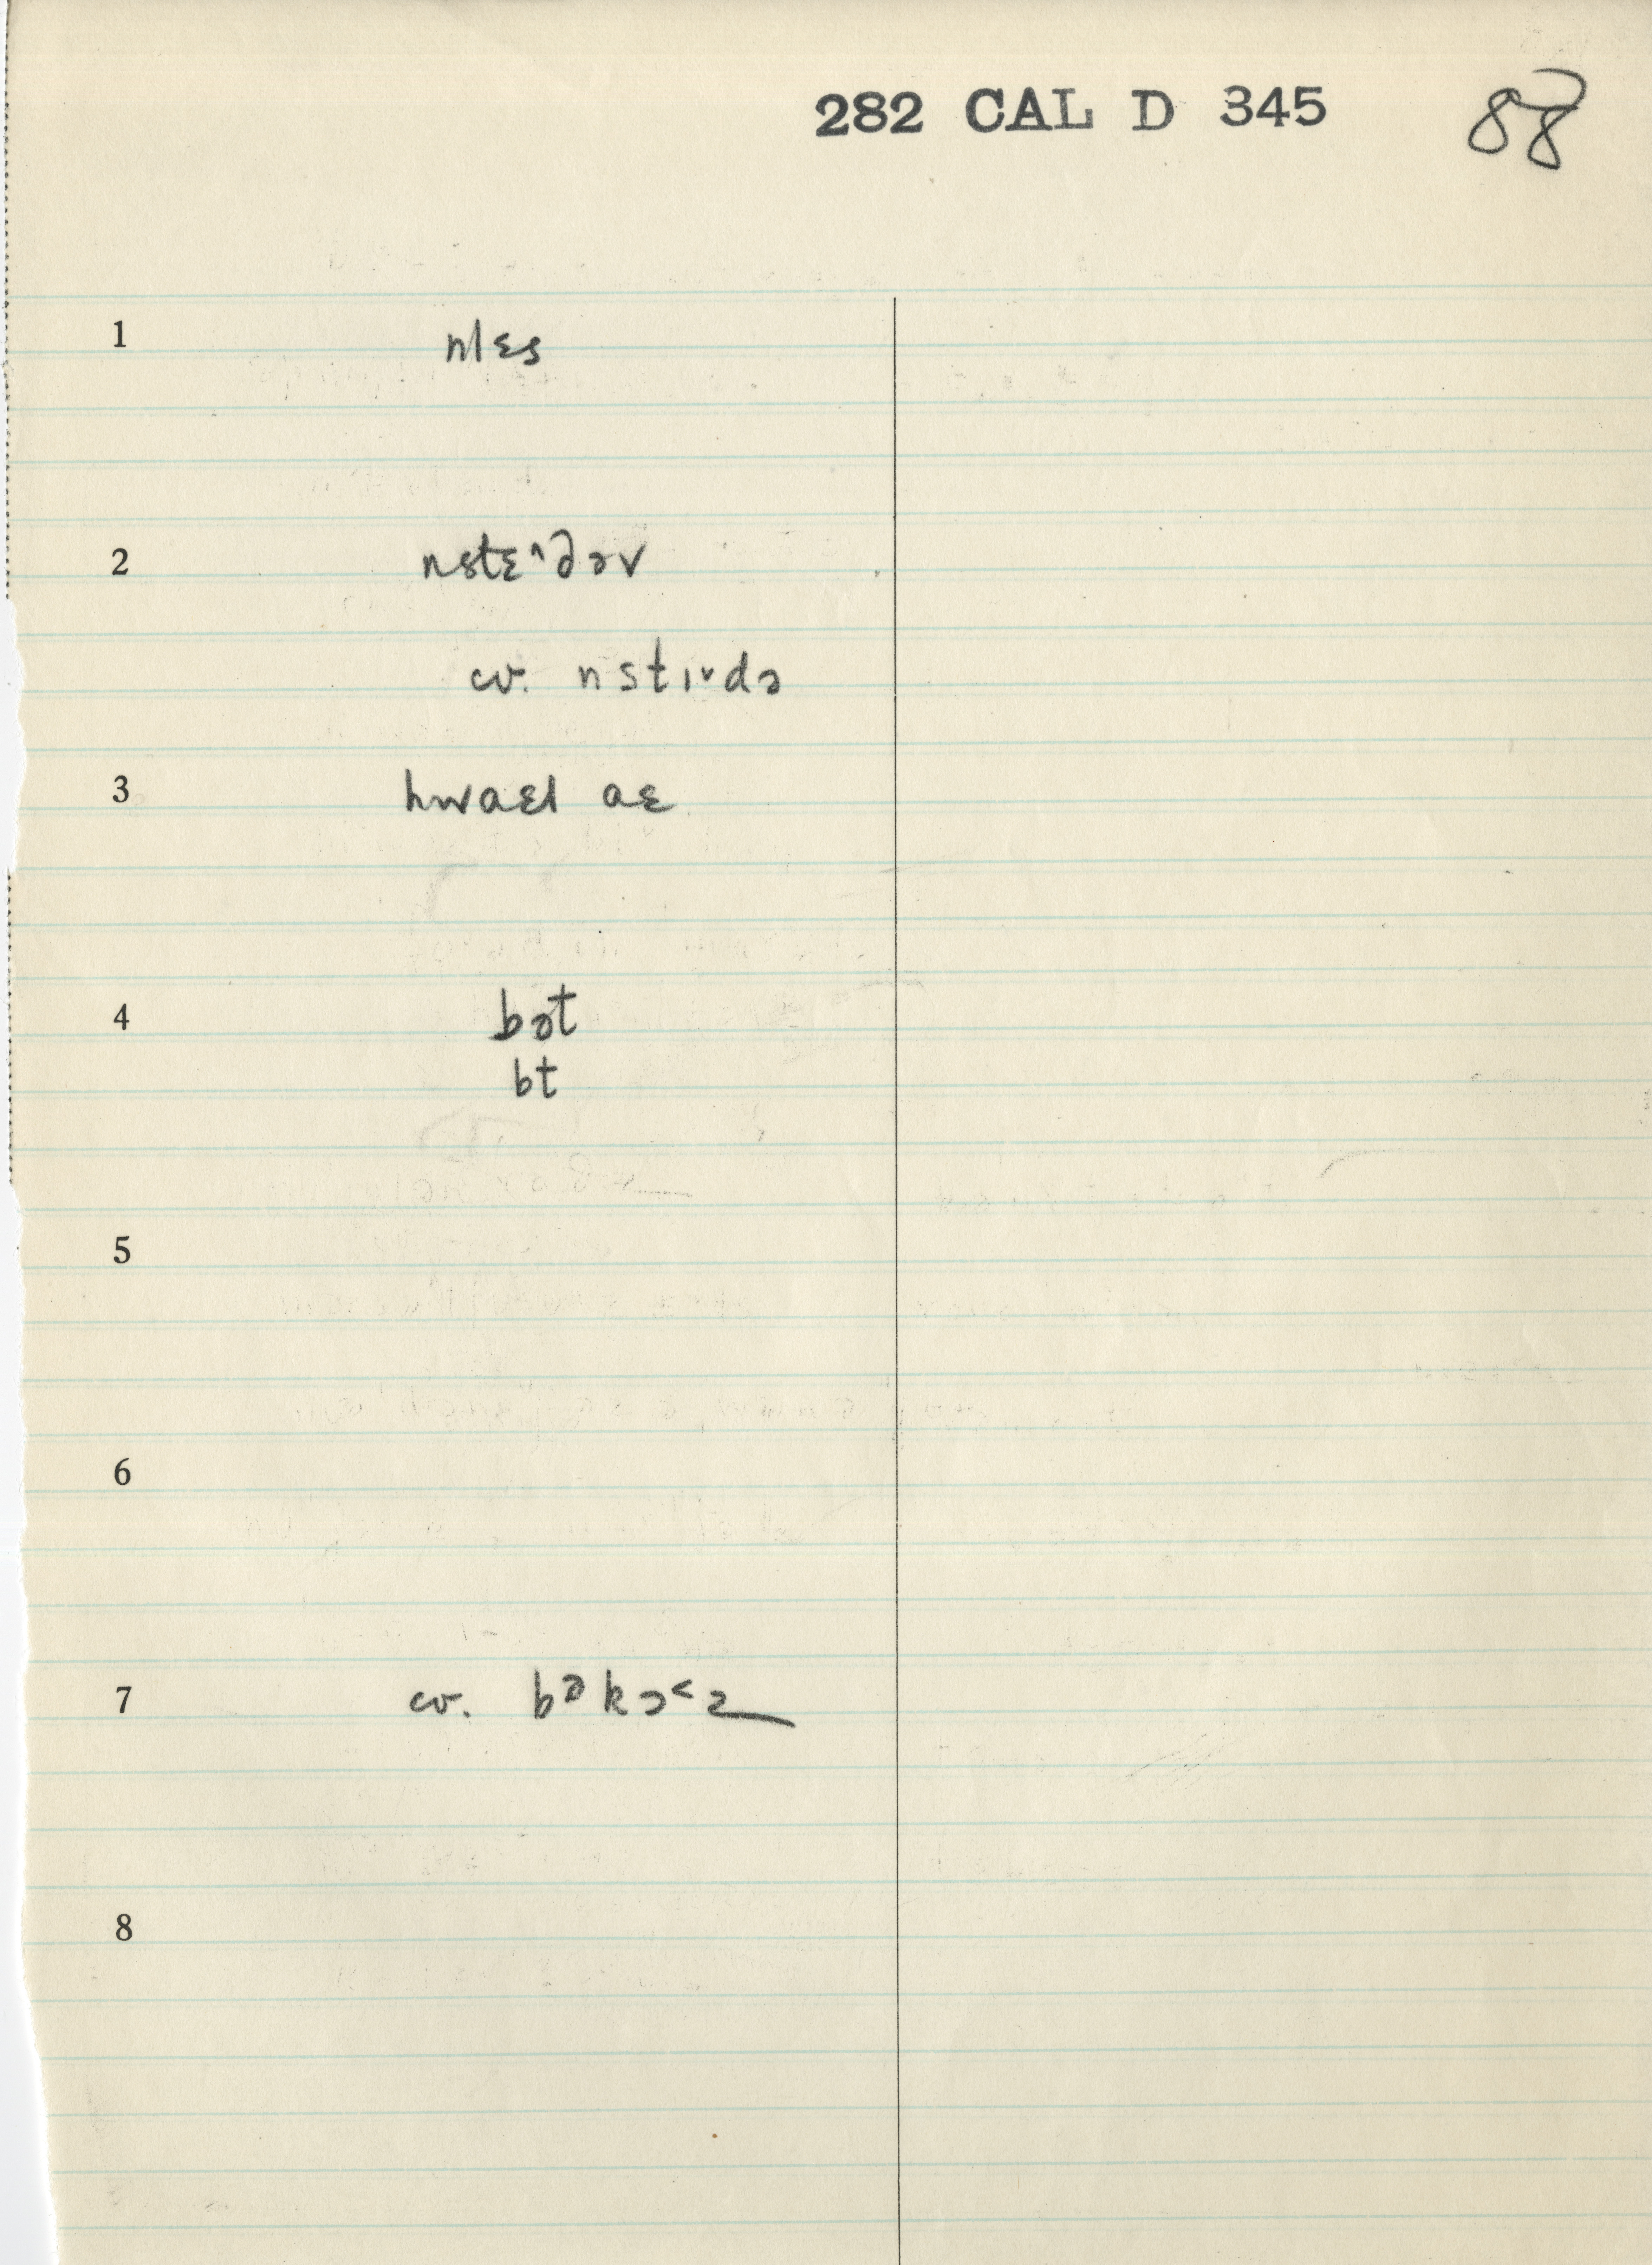 282 CAL D 345 88
1 nlɛs
2 nstɛ^dəv
cv. nstɪ˅də
3 hwaɛl aɛ
4 bət
bt
5
6
7 cv. bᵊkɔ˂z
8